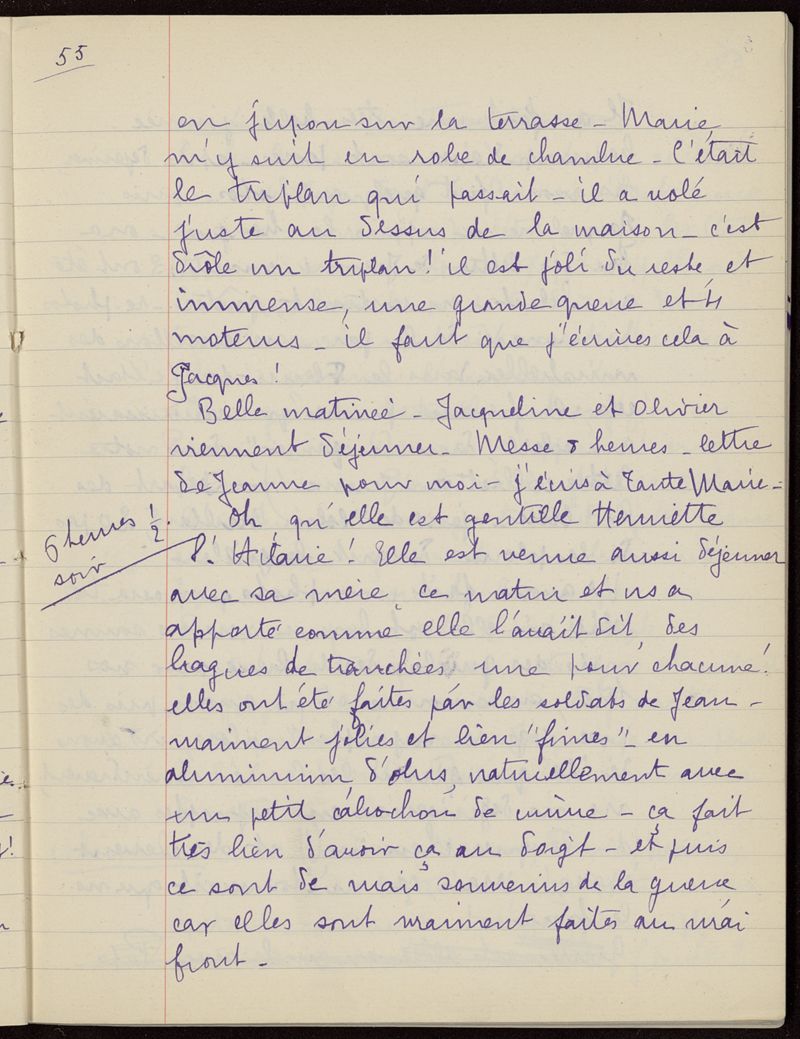 55
en jupon sur la terrasse - Marie
m'y suit en robe de chambre - C'était
le triplan qui passait - il a volé
juste au dessus de la maison - c'est
drôle un triplan ! il est joli du reste, et
immense, une grande queue et 4
moteurs - il faut que j'écrives cela à
Jacques !
Belle matineé - Jacqueline et Olivier
viennent déjeuner - Messe 8 heures - lettre
de Jeanne pour moi - j'écris à Tante Marie -
6 heures 1/2.
soir
Oh qu'elle est gentille Henriette
! Elle est venue aussi déjeuner
avec sa mère ce matin et ns a
apporté comme elle l'avait dit des
bagues de tranchées, une pour chacune !
elles ont été faites par les soldats de Jean -
vraiment jolies et bien "finies" - en
aluminium d'obus, naturellement avec
un petit cabochon de cuivre - ça fait
très bien d'avoir ça au doigt - et puis
ce sont de vrais souvenirs de la guerre
car elles sont vraiment faites au vrai
front -